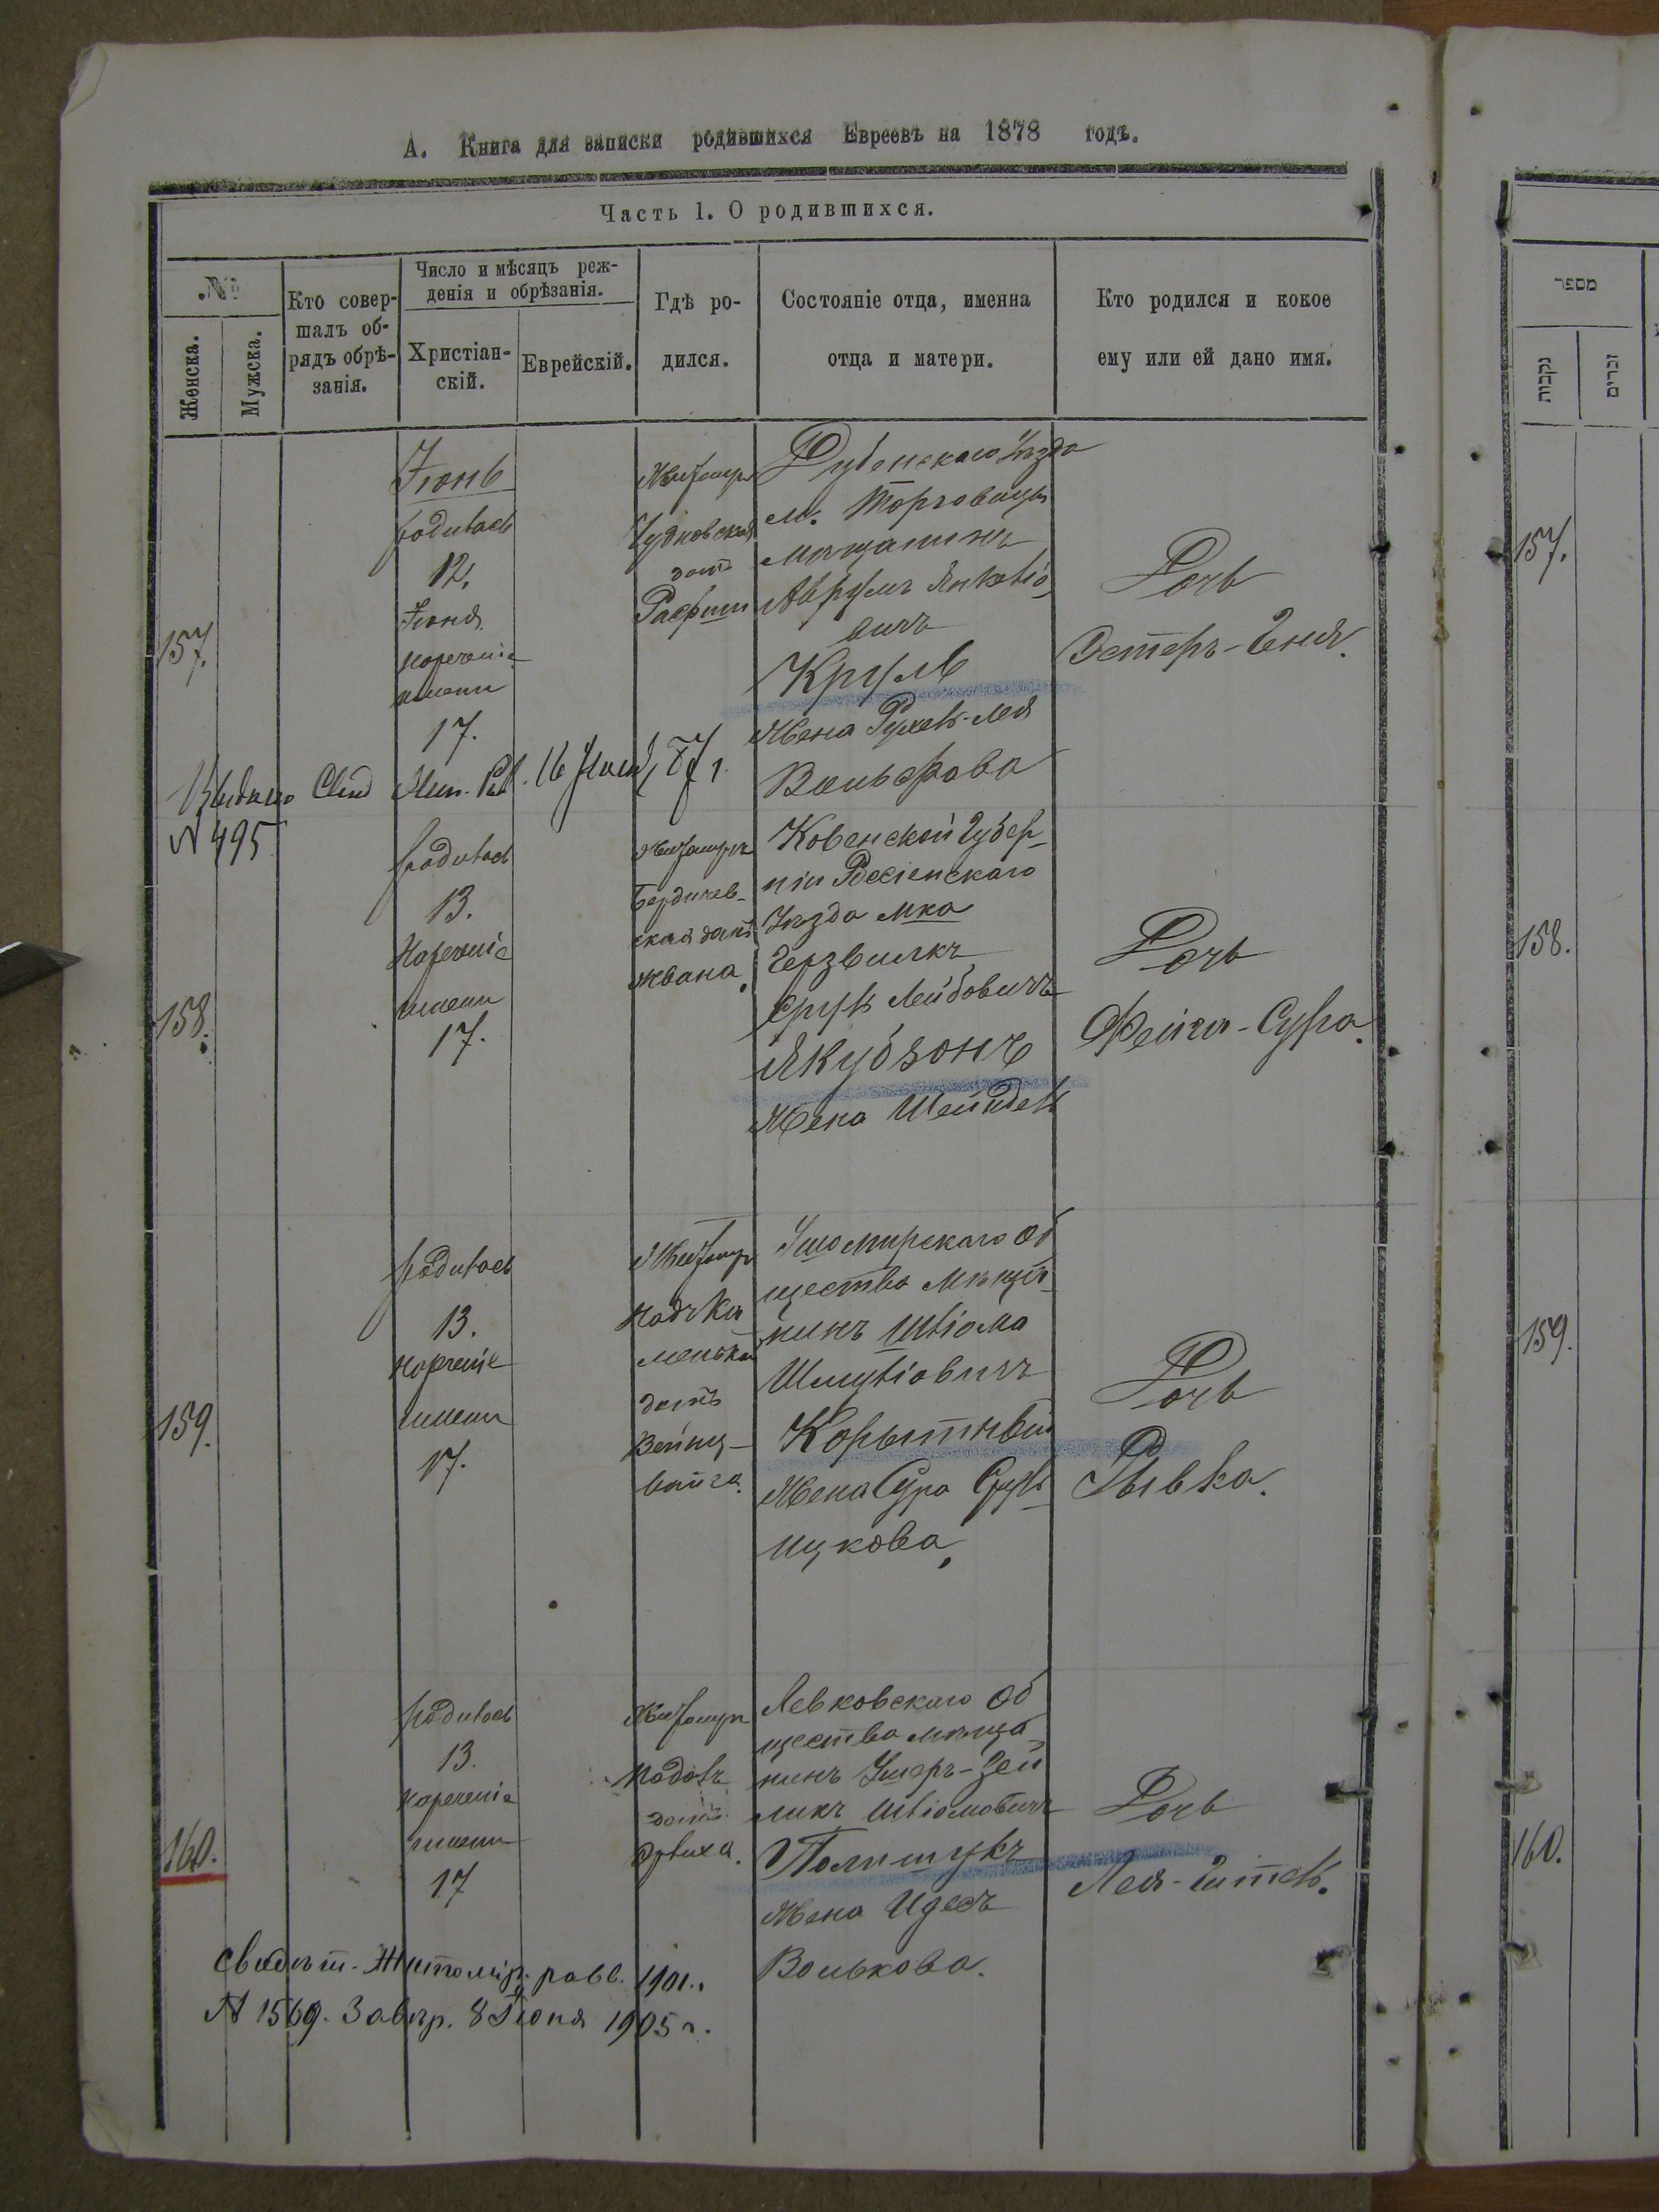 А. Книга для записки родившихся Евреевъ на 1878 годъ.
Часть 1. О родившихся.
№
Женска.
Мужска.
Кто совер-
шалъ об-
рядъ обрѣ-
занія.
Число и мѣсяцъ реж-
денія и обрѣзанія.
Христіан-
скій.
Еврейскій.
Гдѣ ро-
дился.
Состояніе отца, именна
отца и матери.
Кто родился и кокое
ему или ей дано имя.
157.
Іюнь
родилась
12.
Іюня
нареченіе
имени
17.
Житомръ
Чудновская
домъ
Дубенскаго Уѣзда
м. Торговицы
мѣщанинъ
Аврумъ Янкеліо
вичъ
Круль
Жена Рухель-Лея
Вольфова
Дочь
Эстеръ-Геня.
Выдано
№ 495
158.
родилась
13.
Нареченіе
имени
17.
Житомръ
Бердичев-
ская домъ
Жвана.
Ковенской Губер-
ніи Россіенскаго
Уѣзда мка
Герзвилкъ
Сруль Лейбовичъ
Якубзонъ
Жена Шейндель
Дочь
Фейга-Сура.
159.
родилась
13.
нареченіе
имени
17.
Житомр
домъ
Вейнц-
вайга.
Ушомирскаго Об
щества мѣща-
нинъ Шліома
Шмуліовичъ
Корытный
Жена Сура Сруль
ицкова.
Дочь
Рывка.
160.
родилась
13.
нареченіе
имени
17
Житомръ
домъ
Левковскаго Об
щества мѣща-
нинъ Ушеръ-Зей
ликъ Шліомовичъ
Полищукъ
Жена Идесъ
Волькова.
Дочь
Лея-Гитель.
Свидѣт. Житомір. равв. 1901.
№ 1569. Завѣр. 8 Іюня 1905 г.
מספר
נקבות
זכרים
157.
158.
159.
160.